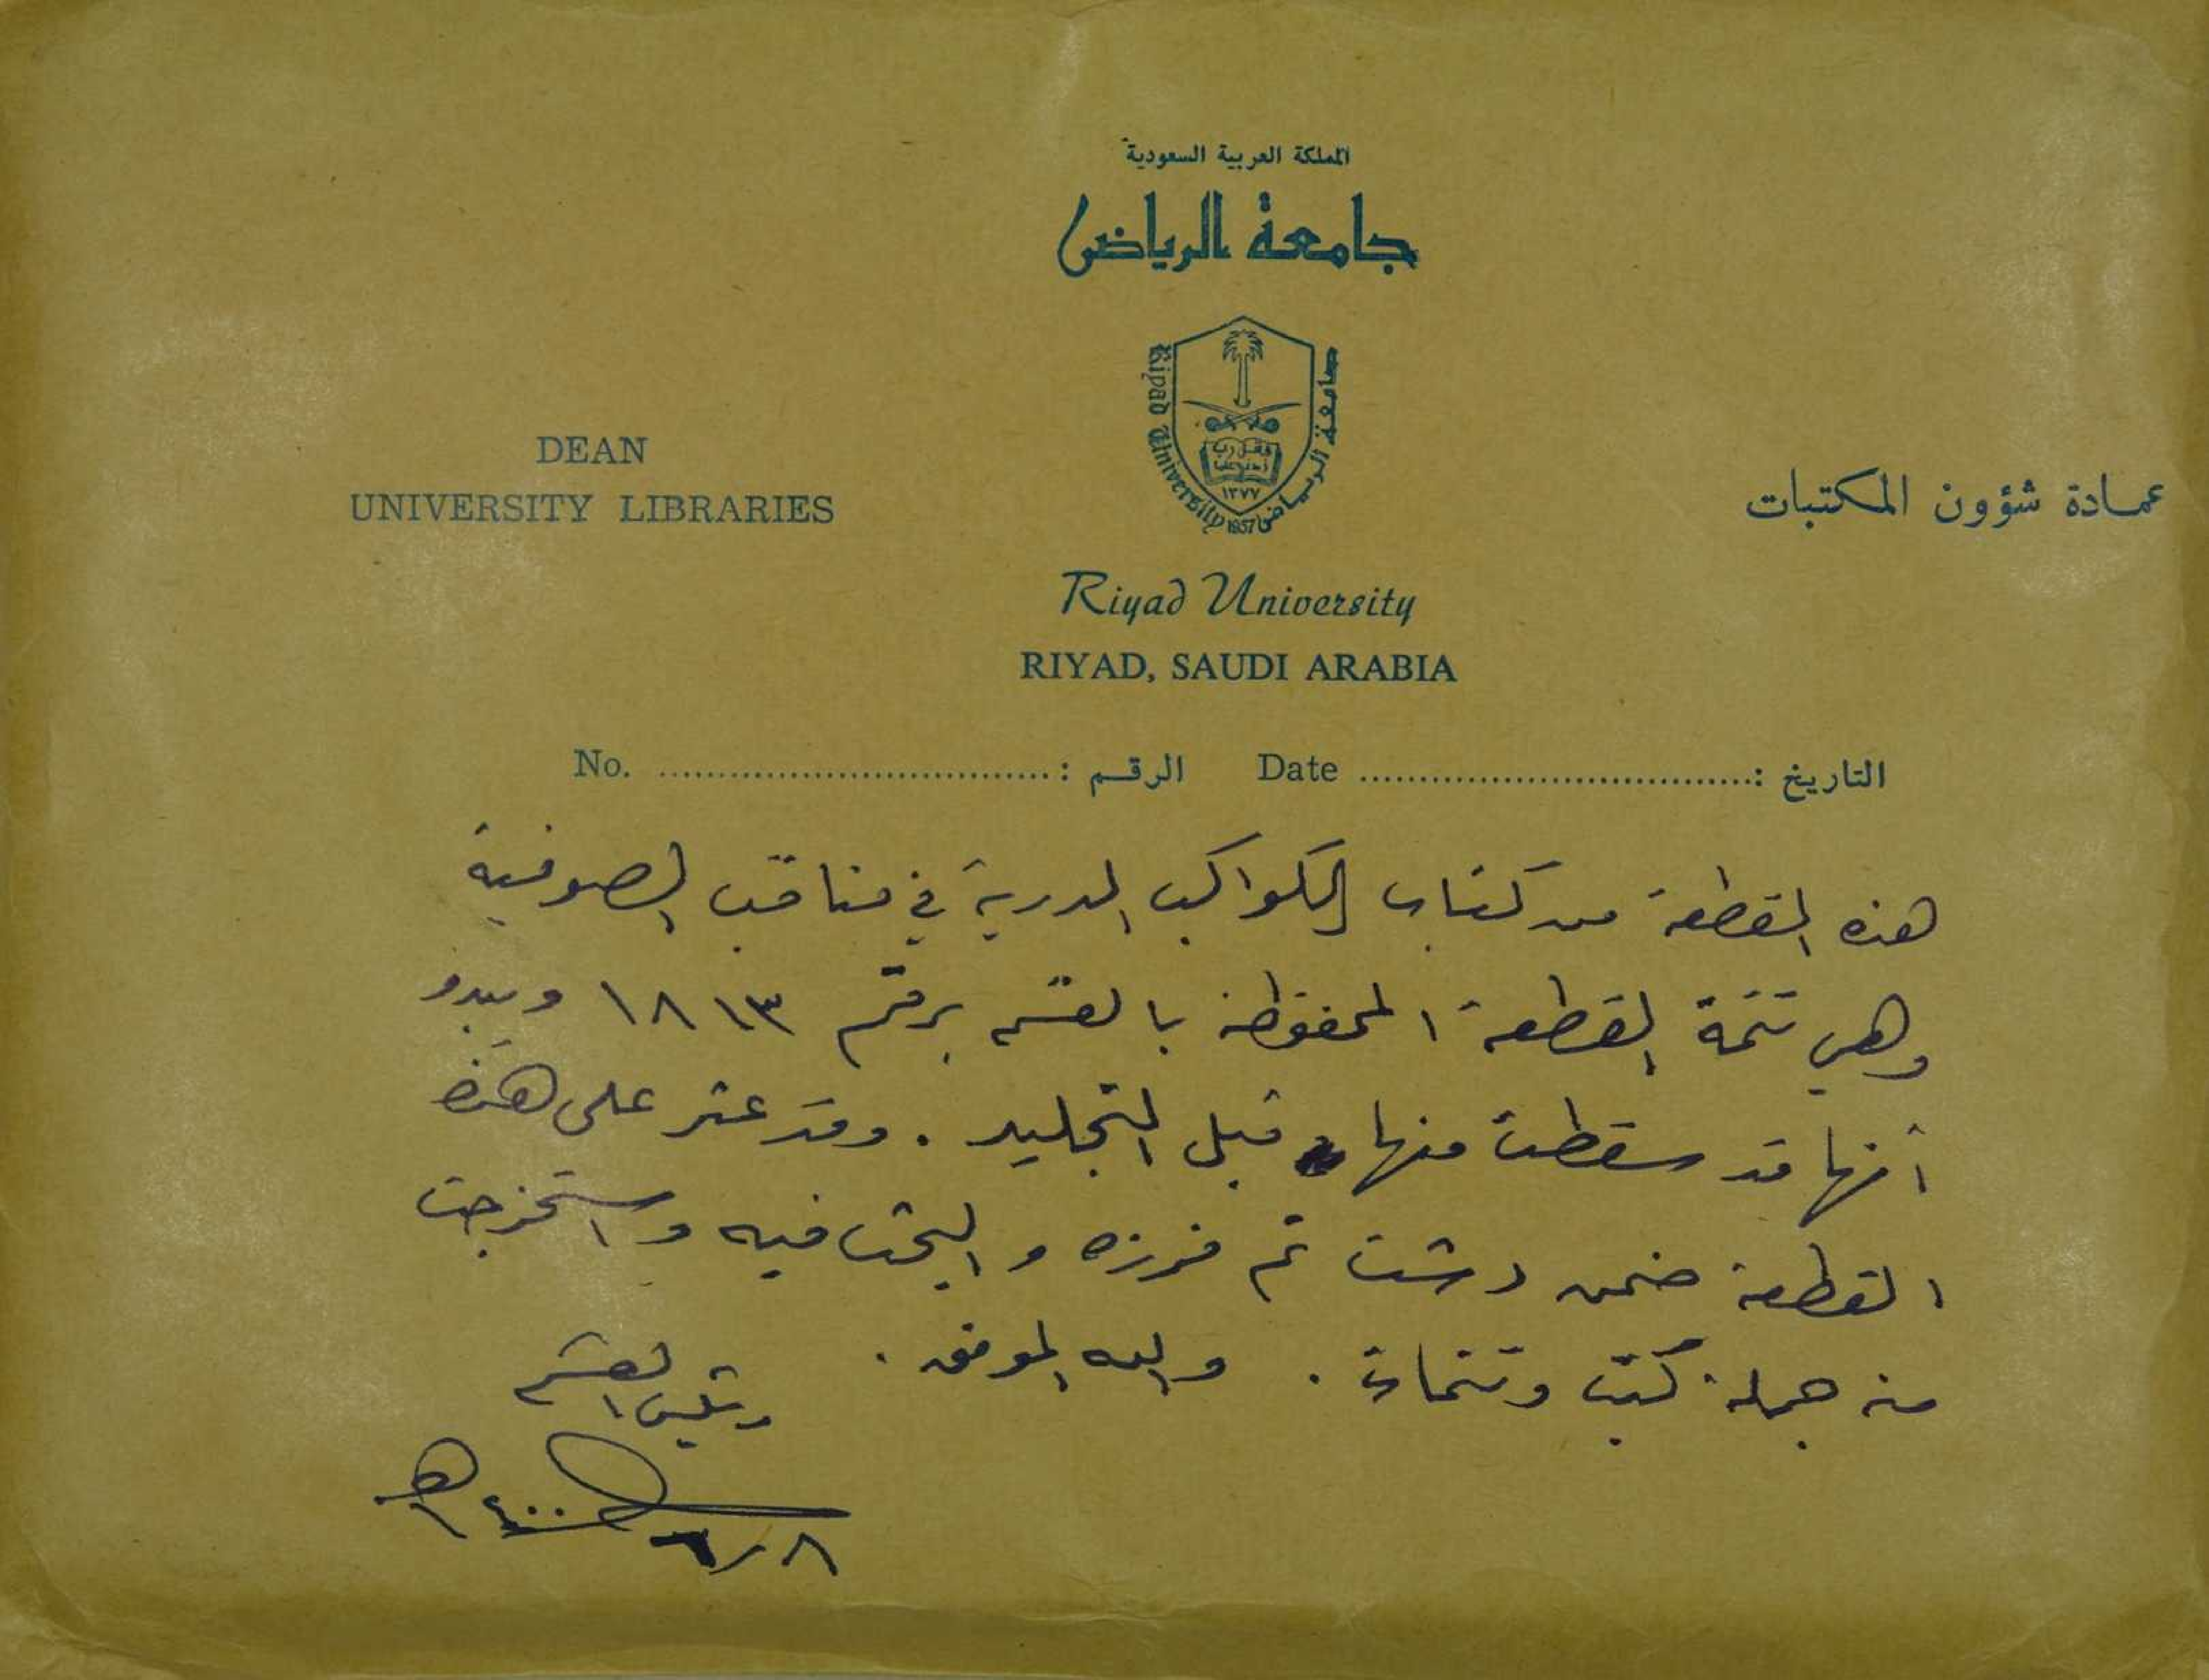 المملكة العربية السعودية
جامعة الرياض
جامعة الرياض
Riyad University 1957
وقل رب
زدني علما
١٣٧٧
DEAN
UNIVERSITY LIBRARIES
عمادة شؤون المكتبات
Riyad University
RIYAD, SAUDI ARABIA
التاريخ : Date الرقم : No.
هذه القطعة من كتاب الكواكب الدرية في مناقب الصوفية
وهي تتمة القطعة المحفوظة بالقسم برقم ١٨١٣ ويبدو
أنها قد سقطت منها قبل التجليد . وقد عثر على هذه
القطعة ضمن دشت تم فرزه والبحث فيه واستخرجت
منه جملة كتب وتتمات . والله الموفق .
رئيس القسم
٨/٦/١٤٠٠هـ